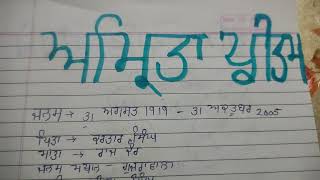 ਅਮ੍ਰਿਤਾ ਪ੍ਰੀਤਮ
ਜਨਮ → 31 ਅਗਸਤ 1919 - 31 ਅਕਤੂਬਰ 2005
ਪਿਤਾ → ਕਰਤਾਰ ਸਿੰਘ
ਮਾਤਾ → ਰਾਜ ਕੌਰ
ਜਨਮ ਸਥਾਨ - ਗੁਜਰਾਂਵਾਲਾ